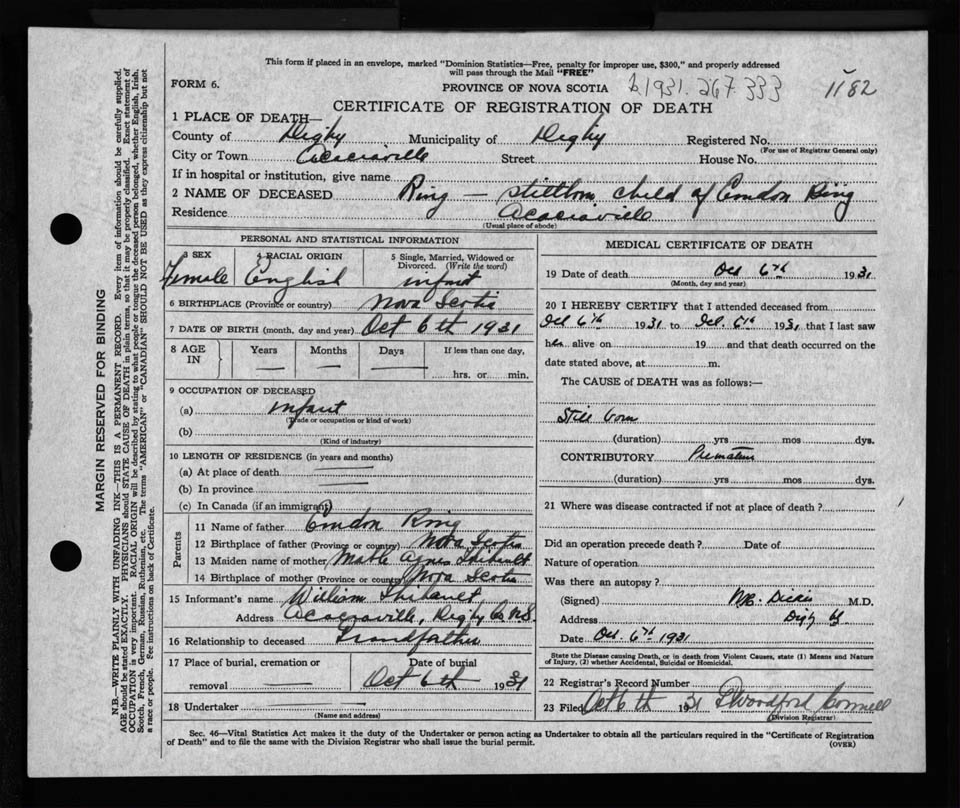 This form if placed in an envelope, marked "Dominion Statistics—Free, penalty for improper use, $300," and properly addressed
will pass through the Mail "FREE"
FORM 6.
PROVINCE OF NOVA SCOTIA
1931. 267 333
1182
CERTIFICATE OF REGISTRATION OF DEATH
1 PLACE OF DEATH—
County of Digby Municipality of Digby Registered No.
(For use of Registrar General only)
City or Town Acaciaville Street House No.
If in hospital or institution, give name
2 NAME OF DECEASED Ring — stillborn child of Ring
Residence Acaciaville
(Usual place of abode)
PERSONAL AND STATISTICAL INFORMATION
3 SEX
Female
4 RACIAL ORIGIN
English
5 Single, Married, Widowed or
Divorced. (Write the word)
infant
6 BIRTHPLACE (Province or country) Nova Scotia
7 DATE OF BIRTH (month, day and year) Oct 6th 1931
8 AGE IN
Years — Months — Days — If less than one day,
hrs. or min.
9 OCCUPATION OF DECEASED
(a) Infant
(Trade or occupation or kind of work)
(b)
(Kind of industry)
10 LENGTH OF RESIDENCE (in years and months)
(a) At place of death —
(b) In province —
(c) In Canada (if an immigrant)
Parents
11 Name of father Ring
12 Birthplace of father (Province or country) Nova Scotia
13 Maiden name of mother Agnes Thibault
14 Birthplace of mother (Province or country) Nova Scotia
15 Informant's name William Thibault
Address Acaciaville, Digby Co N.S.
16 Relationship to deceased Grandfather
17 Place of burial, cremation or
removal —
Date of burial
Oct 6th 1931
18 Undertaker —
(Name and address)
MEDICAL CERTIFICATE OF DEATH
19 Date of death Oct 6th 1931
(Month, day and year)
20 I HEREBY CERTIFY that I attended deceased from
Oct 6th 1931 to Oct. 6th 1931 that I last saw
her alive on 19 and that death occurred on the
date stated above, at m.
The CAUSE of DEATH was as follows:—
Still born
(duration) yrs mos dys.
CONTRIBUTORY Premature
(duration) yrs mos dys.
21 Where was disease contracted if not at place of death?
Did an operation precede death? Date of
Nature of operation
Was there an autopsy?
(Signed) Dickie M.D.
Address Digby
Date Oct. 6th 1931
State the Disease causing Death, or in death from Violent Causes, state (1) Means and Nature
of Injury, (2) whether Accidental, Suicidal or Homicidal.
22 Registrar's Record Number
23 Filed Oct 6th 1931 Woodford Connell
(Division Registrar)
Sec. 46—Vital Statistics Act makes it the duty of the Undertaker or person acting as Undertaker to obtain all the particulars required in the "Certificate of Registration
of Death" and to file the same with the Division Registrar who shall issue the burial permit.
(OVER)
MARGIN RESERVED FOR BINDING
N.B.—WRITE PLAINLY WITH UNFADING INK—THIS IS A PERMANENT RECORD. Every item of information should be carefully supplied.
AGE should be stated EXACTLY. PHYSICIANS should STATE CAUSE OF DEATH in plain terms, so that it may be properly classified. Exact statement of
OCCUPATION is very important. RACIAL ORIGIN will be described by stating to what people or tongue the deceased person belonged, whether English, Irish,
Scotch, French, German, Russian, Ruthenian, etc. The terms "AMERICAN" or "CANADIAN" SHOULD NOT BE USED as they express citizenship but not
a race or people. See instructions on back of Certificate.